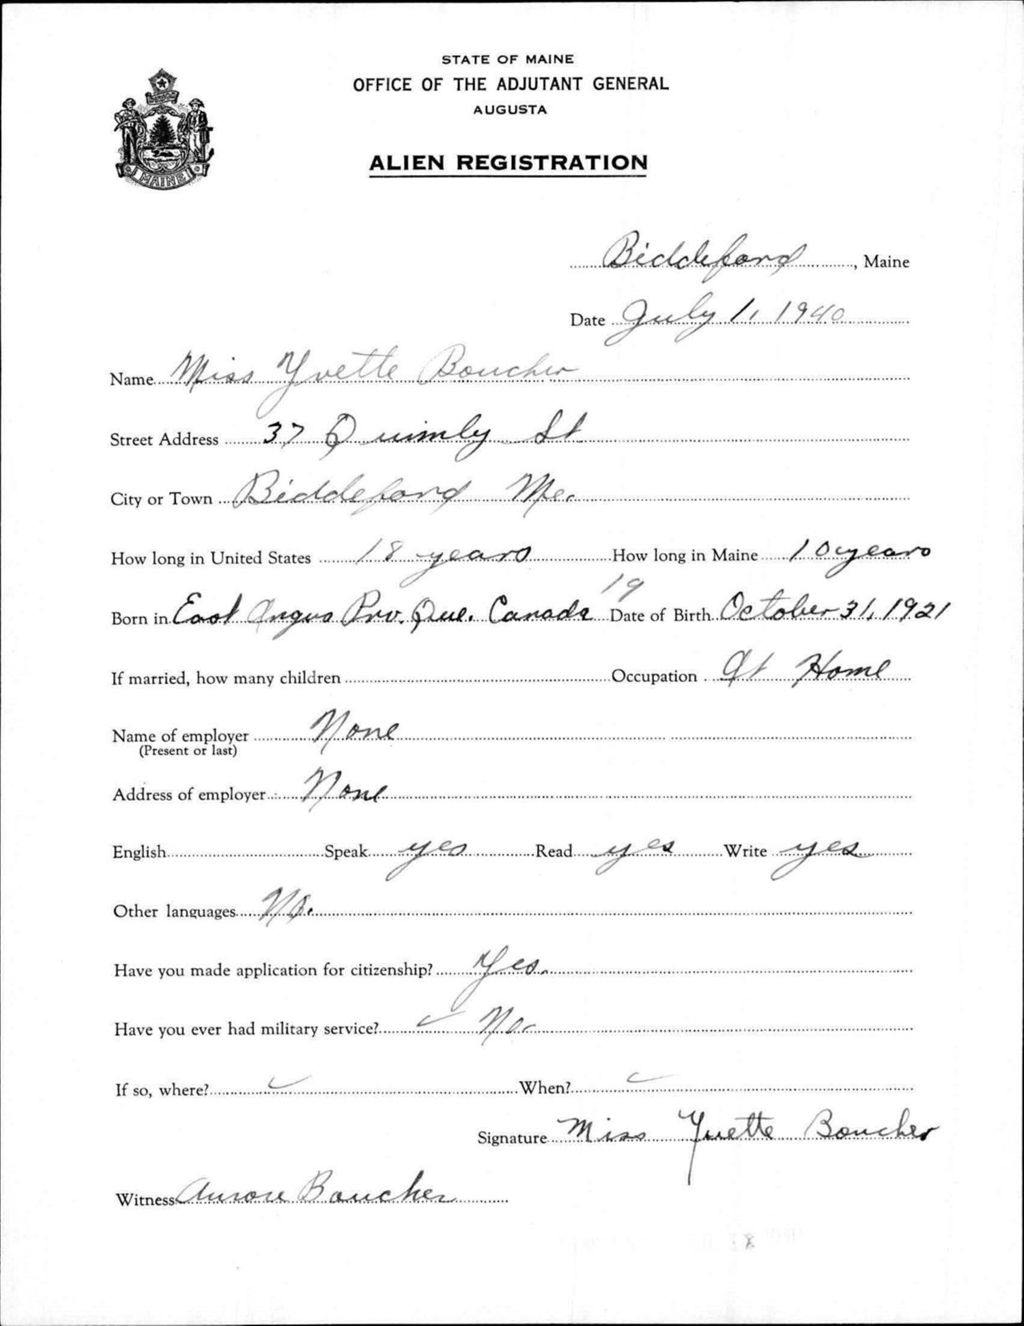 STATE OF MAINE
OFFICE OF THE ADJUTANT GENERAL
AUGUSTA
ALIEN REGISTRATION
MAINE
Biddeford, Maine
Date July 1, 1940
Name Miss Yvette Boucher
Street Address 37 Quimby St
City or Town Biddeford Me.
How long in United States 18 years How long in Maine 10 years
19
Born in East Angus Prov. Que. Canada Date of Birth October 31, 1921
If married, how many children Occupation At Home
Name of employer None
(Present or last)
Address of employer None
English Speak yes Read yes Write yes
Other languages No.
Have you made application for citizenship? Yes.
Have you ever had military service? No.
If so, where? When?
Signature Miss Yvette Boucher
Witness Aurore Boucher